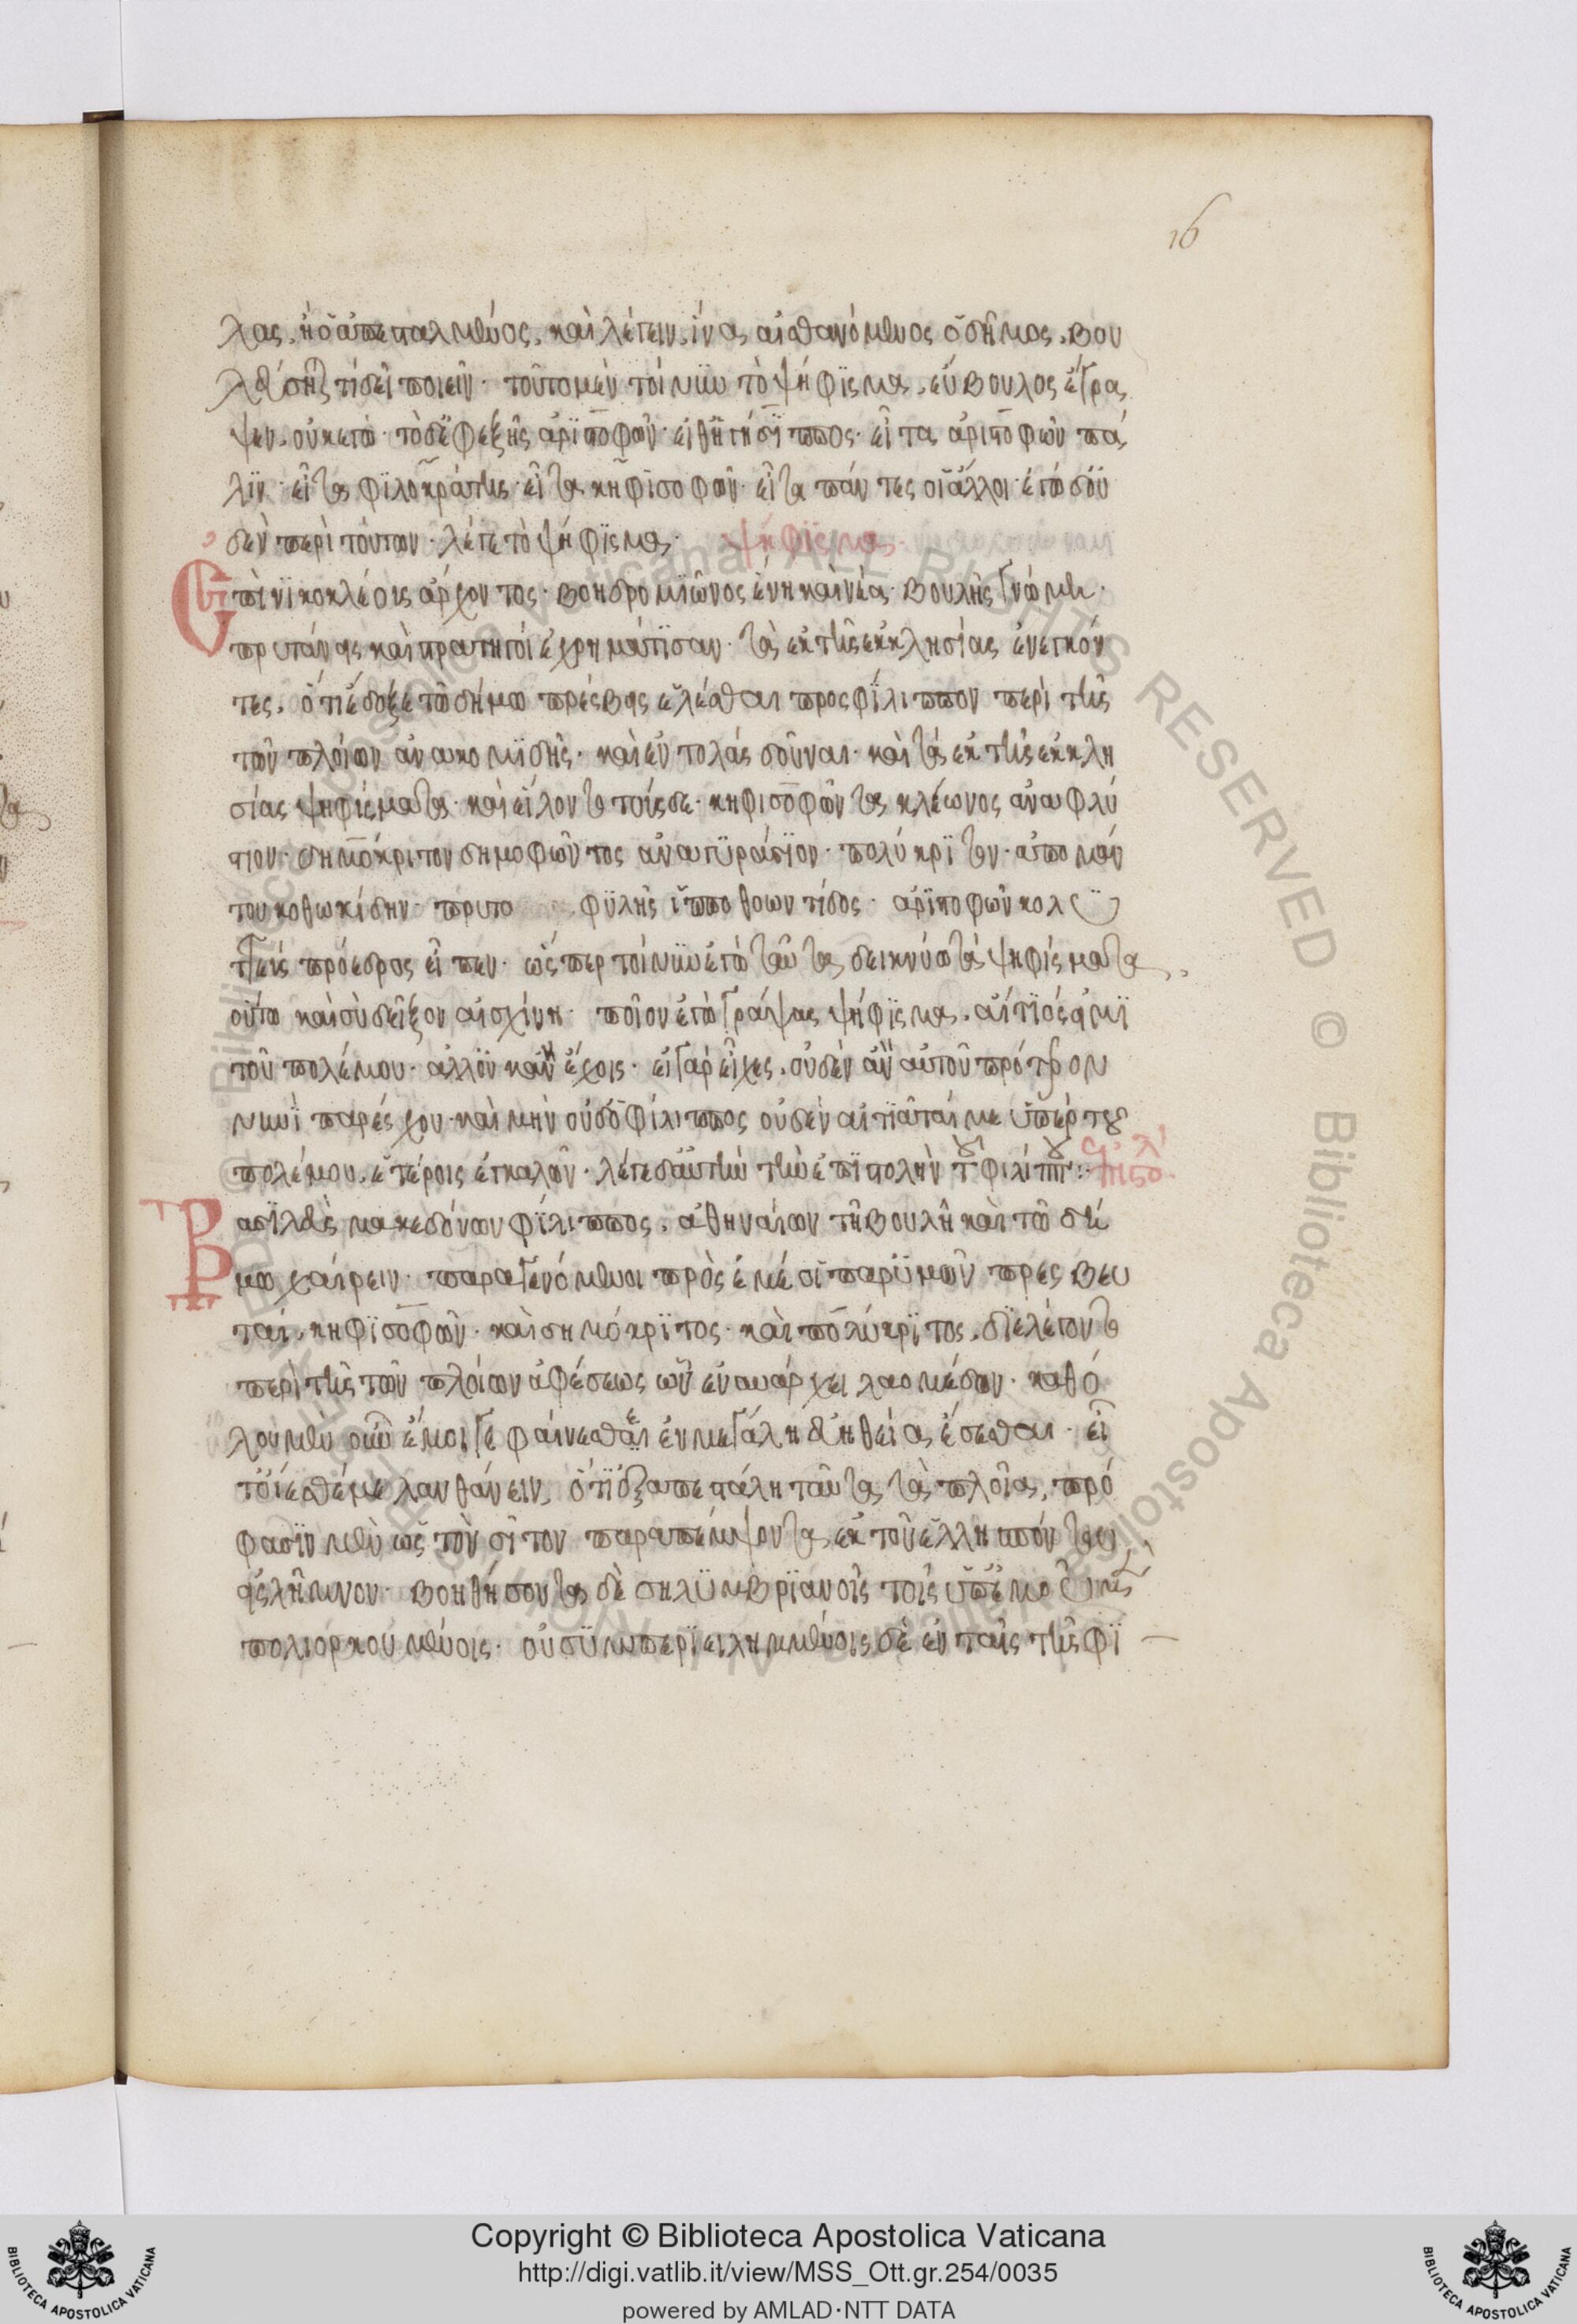 16
λας, ἢ ὁ ἀπεσταλμένος. καὶ λέγειν. ἵνα αἰσθανόμενος ὁ δῆμος, βου
λεύσηται τί δεῖ ποιεῖν· τοῦτο μὲν τοίνυν τὸ ψήφϊσμα, εὔβουλος ἔγρα
ψεν. οὐκ ἐγώ· τὸ δ' ἐφεξῆς ἀρϊστοφῶν· εἶθ' ἡγήσϊππος· εἶτα ἀριστοφῶν πά
λϊν· εἶτα φϊλοκράτης· εἶτα κηφϊσοφῶν· εἶτα πάντες οἱ ἄλλοι· ἐγὼ δ' οὐ
δὲν περὶ τούτων· λέγε τὸ ψήφϊσμα· ψήφϊσμα.
Ἐπὶ νϊκοκλέους ἄρχοντος· βοηδρομϊῶνος ἕνῃ καὶ νέα· βουλῆς γνώμη·
πρυτάνεις καὶ στρατηγοὶ ἐχρημάτϊσαν· τὰ ἐκ τῆς ἐκκλησίας ἐνεγκόν
τες. ὅτι ἔδοξε τῶ δήμω πρέσβεις ἑλέσθαι προς φίλιππον περὶ τῆς
τῶν πλοίων ἀνακομϊδῆς· καὶ ἐντολὰς δοῦναι· καὶ τὰ ἐκ τῆς ἐκκλη
σίας ψηφίσματα· καὶ εἵλοντο τούσδε· κηφισοφῶντα κλέωνος ἀναφλύ
στιον· δημόκριτον δημοφῶντος ἀναγϋράσϊον· πολύκρϊτον· ἀπομάν
του κοθωκίδην· πρυτα φϋλῆς ἱπποθοωντίδος· ἀρϊστοφῶν κολ
πρόεδρος εἶπεν· ὥσπερ τοίνυν ἐγὼ ταῦτα δεικνύω τὰ ψηφίσματα,
οὕτω καὶ σὺ δεῖξον αἰσχίνη· ποῖον ἐγὼ γράψας ψήφϊσμα, αἴτϊός εἰμϊ
τοῦ πολέμου· ἀλλ' οὐκ ἂν ἔχοις· εἰ γὰρ εἶχες, οὐδὲν ἂν αὐτοῦ πρότερον
νυνὶ παρέσχου· καὶ μὴν οὐδ' ὁ φίλιππος οὐδὲν αἰτιᾶταί με ὑπὲρ τοῦ
πολέμου, ἑτέροις ἐγκαλῶν· λέγε δ' αὐτὴν τὴν ἐπϊστολὴν τοῦ φιλίππου: ἐπιστολ
Βασϊλεὺς μακεδόνων φίλιππος, ἀθηναίων τῆ βουλῆ καὶ τῶ δή
μω χαίρειν· παραγενόμενοι πρὸς ἐμέ οἱ παρ' ὑμῶν πρεσβευ
ταί, κηφϊσοφῶν· καὶ δημόκρϊτος· καὶ πολύκρϊτος, διελέγοντο
περὶ τῆς τῶν πλοίων ἀφέσεως ὧν ἐναυάρχει λαομέδων· καθό
λου μὲν οὖν ἔμοιγε φαίνεσθαι ἐν μεγάλη εὐηθεία ἔσεσθαι· εἴ
γ' οἴεσθέ με λανθάνειν, ὅτι ἐξαπεστάλη ταῦτα τὰ πλοῖα, πρό
φασϊν μὲν ὡς τὸν σῖτον παραπέμψοντα, ἐκ τοῦ ἑλλησπόντου
εἰς λῆμνον· βοηθήσοντα δὲ σηλϋμβρϊανοῖς τοῖς ὑπ' ἐμοῦ μὲν
πολιορκουμένοις· οὐ συμπερϊειλημμένοις δὲ ἐν ταῖς τῆς φϊ